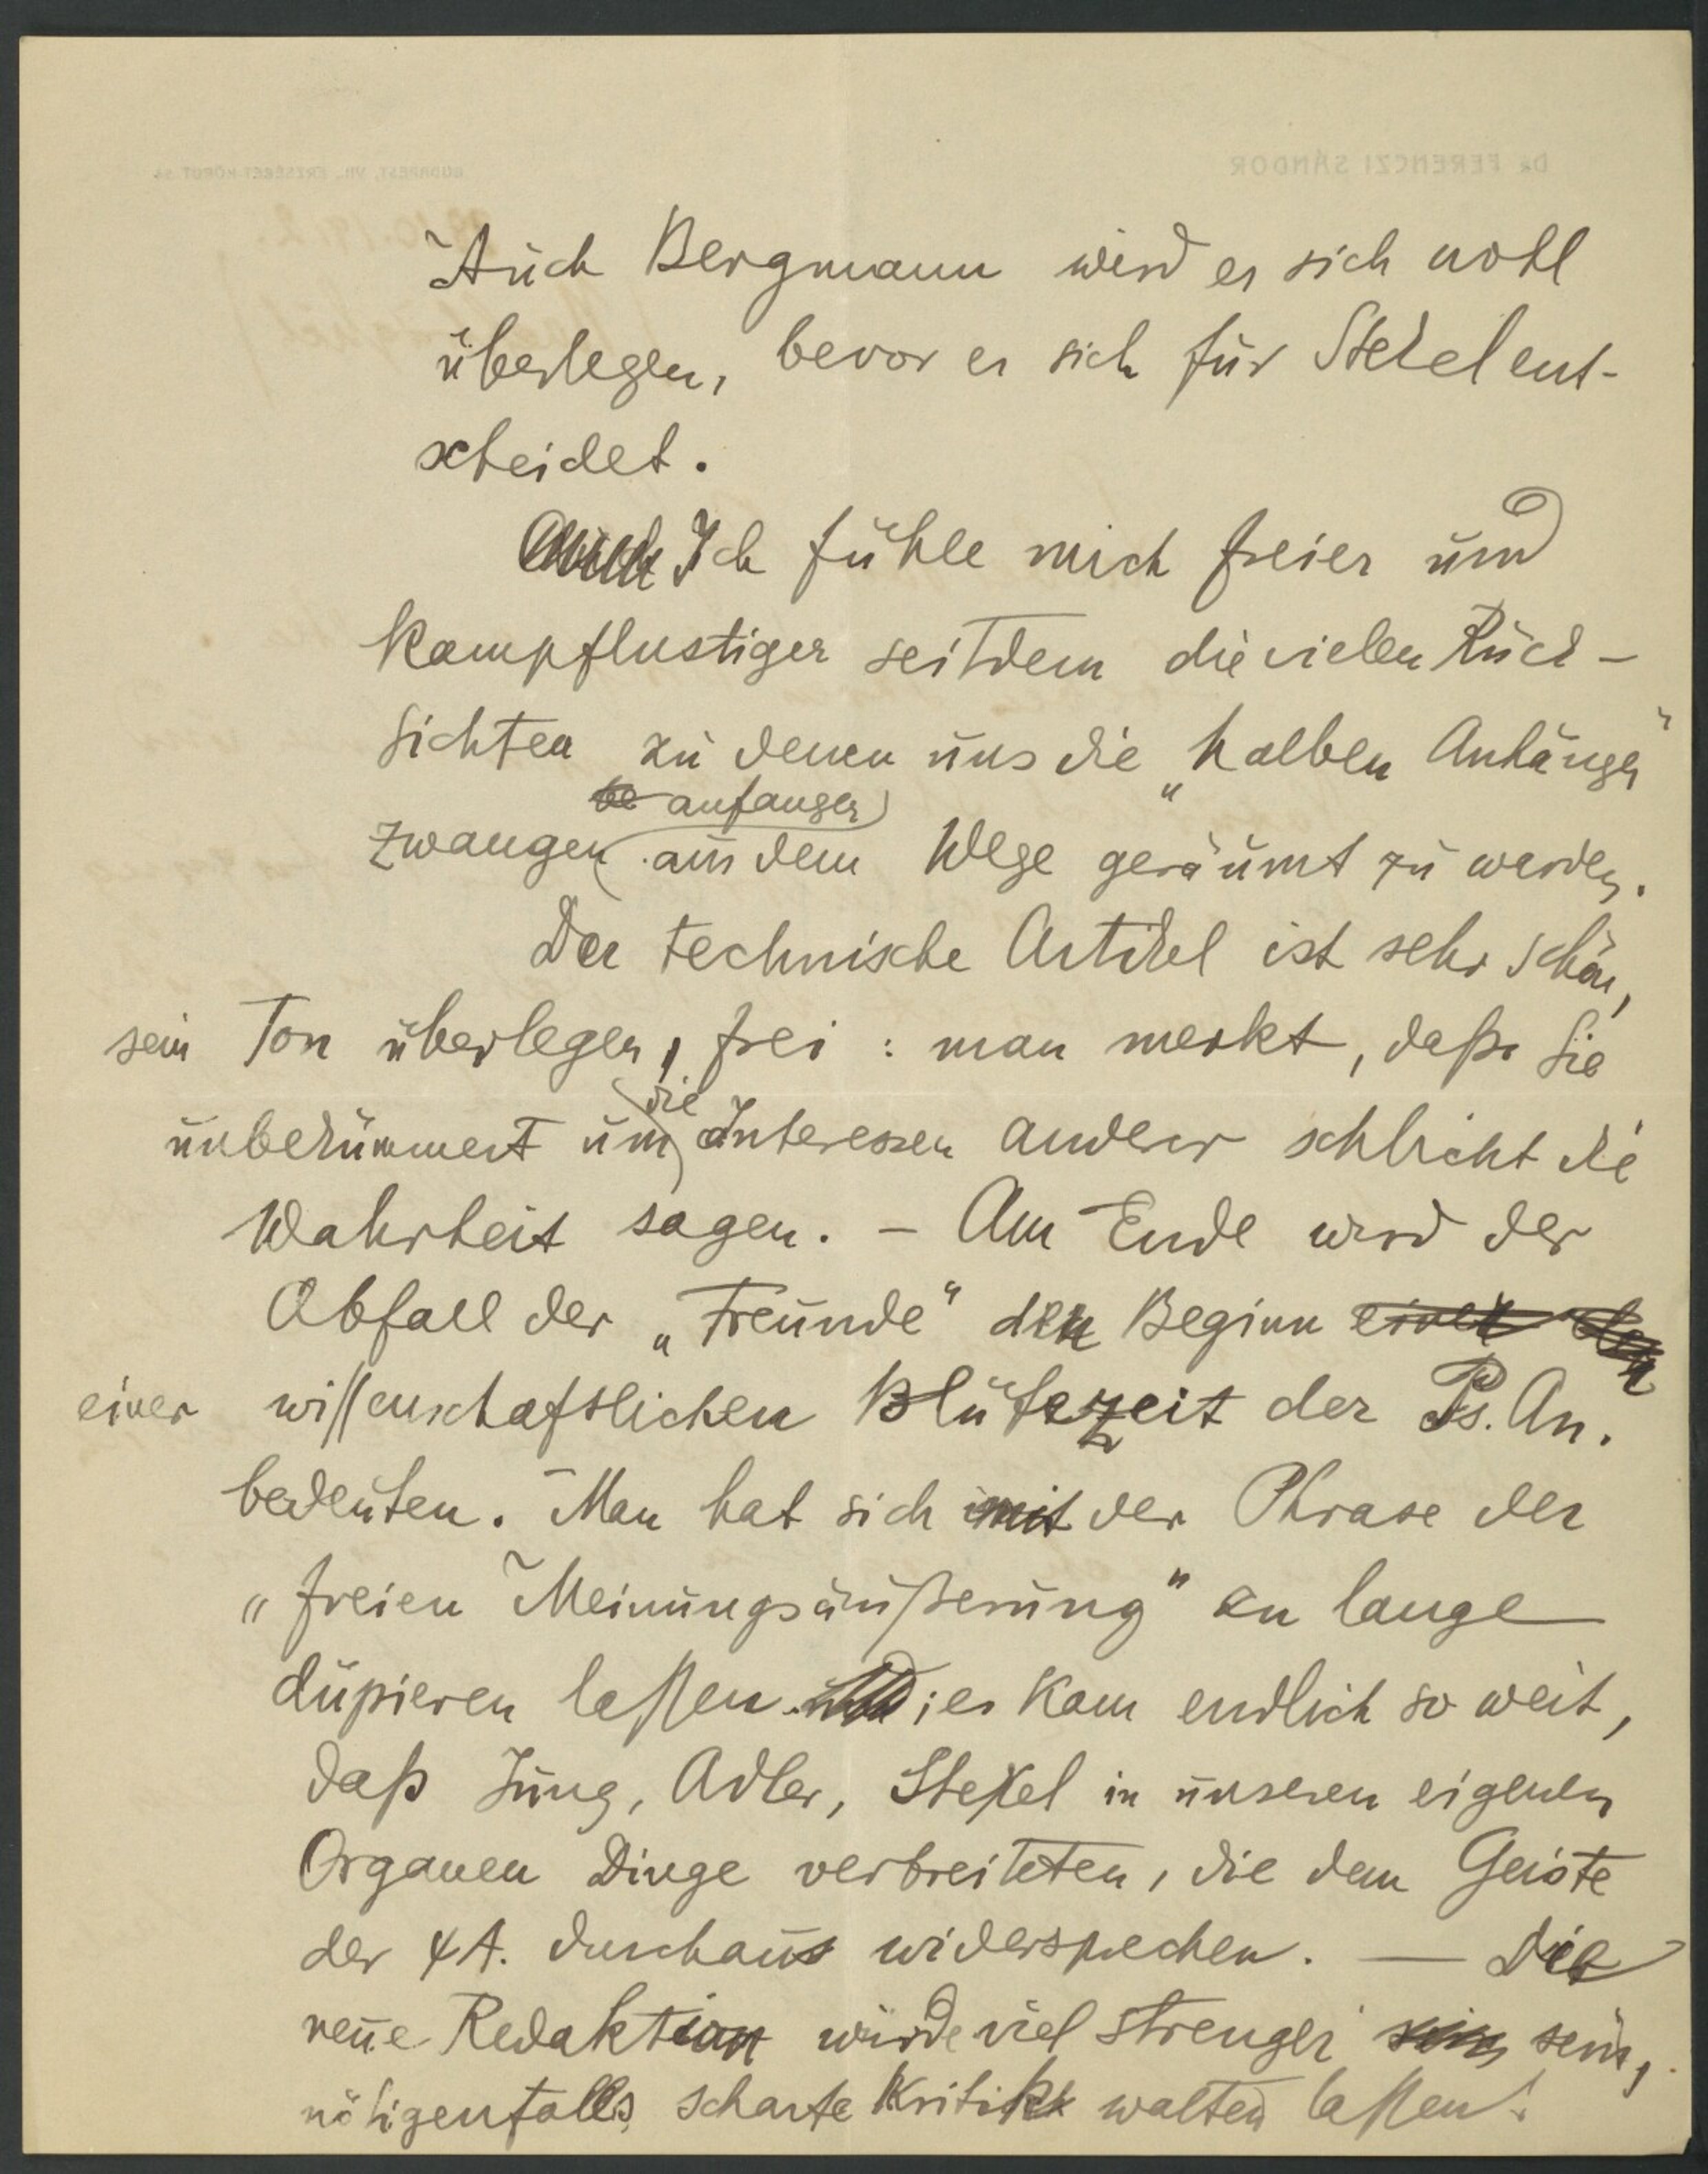 Auch Bergmann wird es sich wohl
überlegen, bevor er sich für Stekel ent-
scheidet.
Auch Ich fühle mich freier und
kampflustiger seitdem die vielen Rück-
sichten zu denen uns die „halben Anhänger"
be anfangen
zwangen aus dem Wege geräumt zu werden.
Der technische Artikel ist sehr schön,
sein Ton überlegen, frei: man merkt, daß Sie
unbekümmert um die Interessen anderer schlicht die
Wahrheit sagen. – Am Ende wird der
Abfall der „Freunde" den Beginn einer der
einer wissenschaftlichen Blütezeit der Ps. An.
bedeuten. Man hat sich mit der Phrase der
„freien Meinungsäußerung" zu lange
düpieren lassen. und; es kam endlich so weit,
daß Jung, Adler, Stekel in unseren eigenen
Organen Dinge verbreiteten, die dem Geiste
der ψA. durchaus widersprechen. — Die
neue Redaktion würde viel strenger sein sein,
nötigenfalls scharfe Kritik walten lassen!